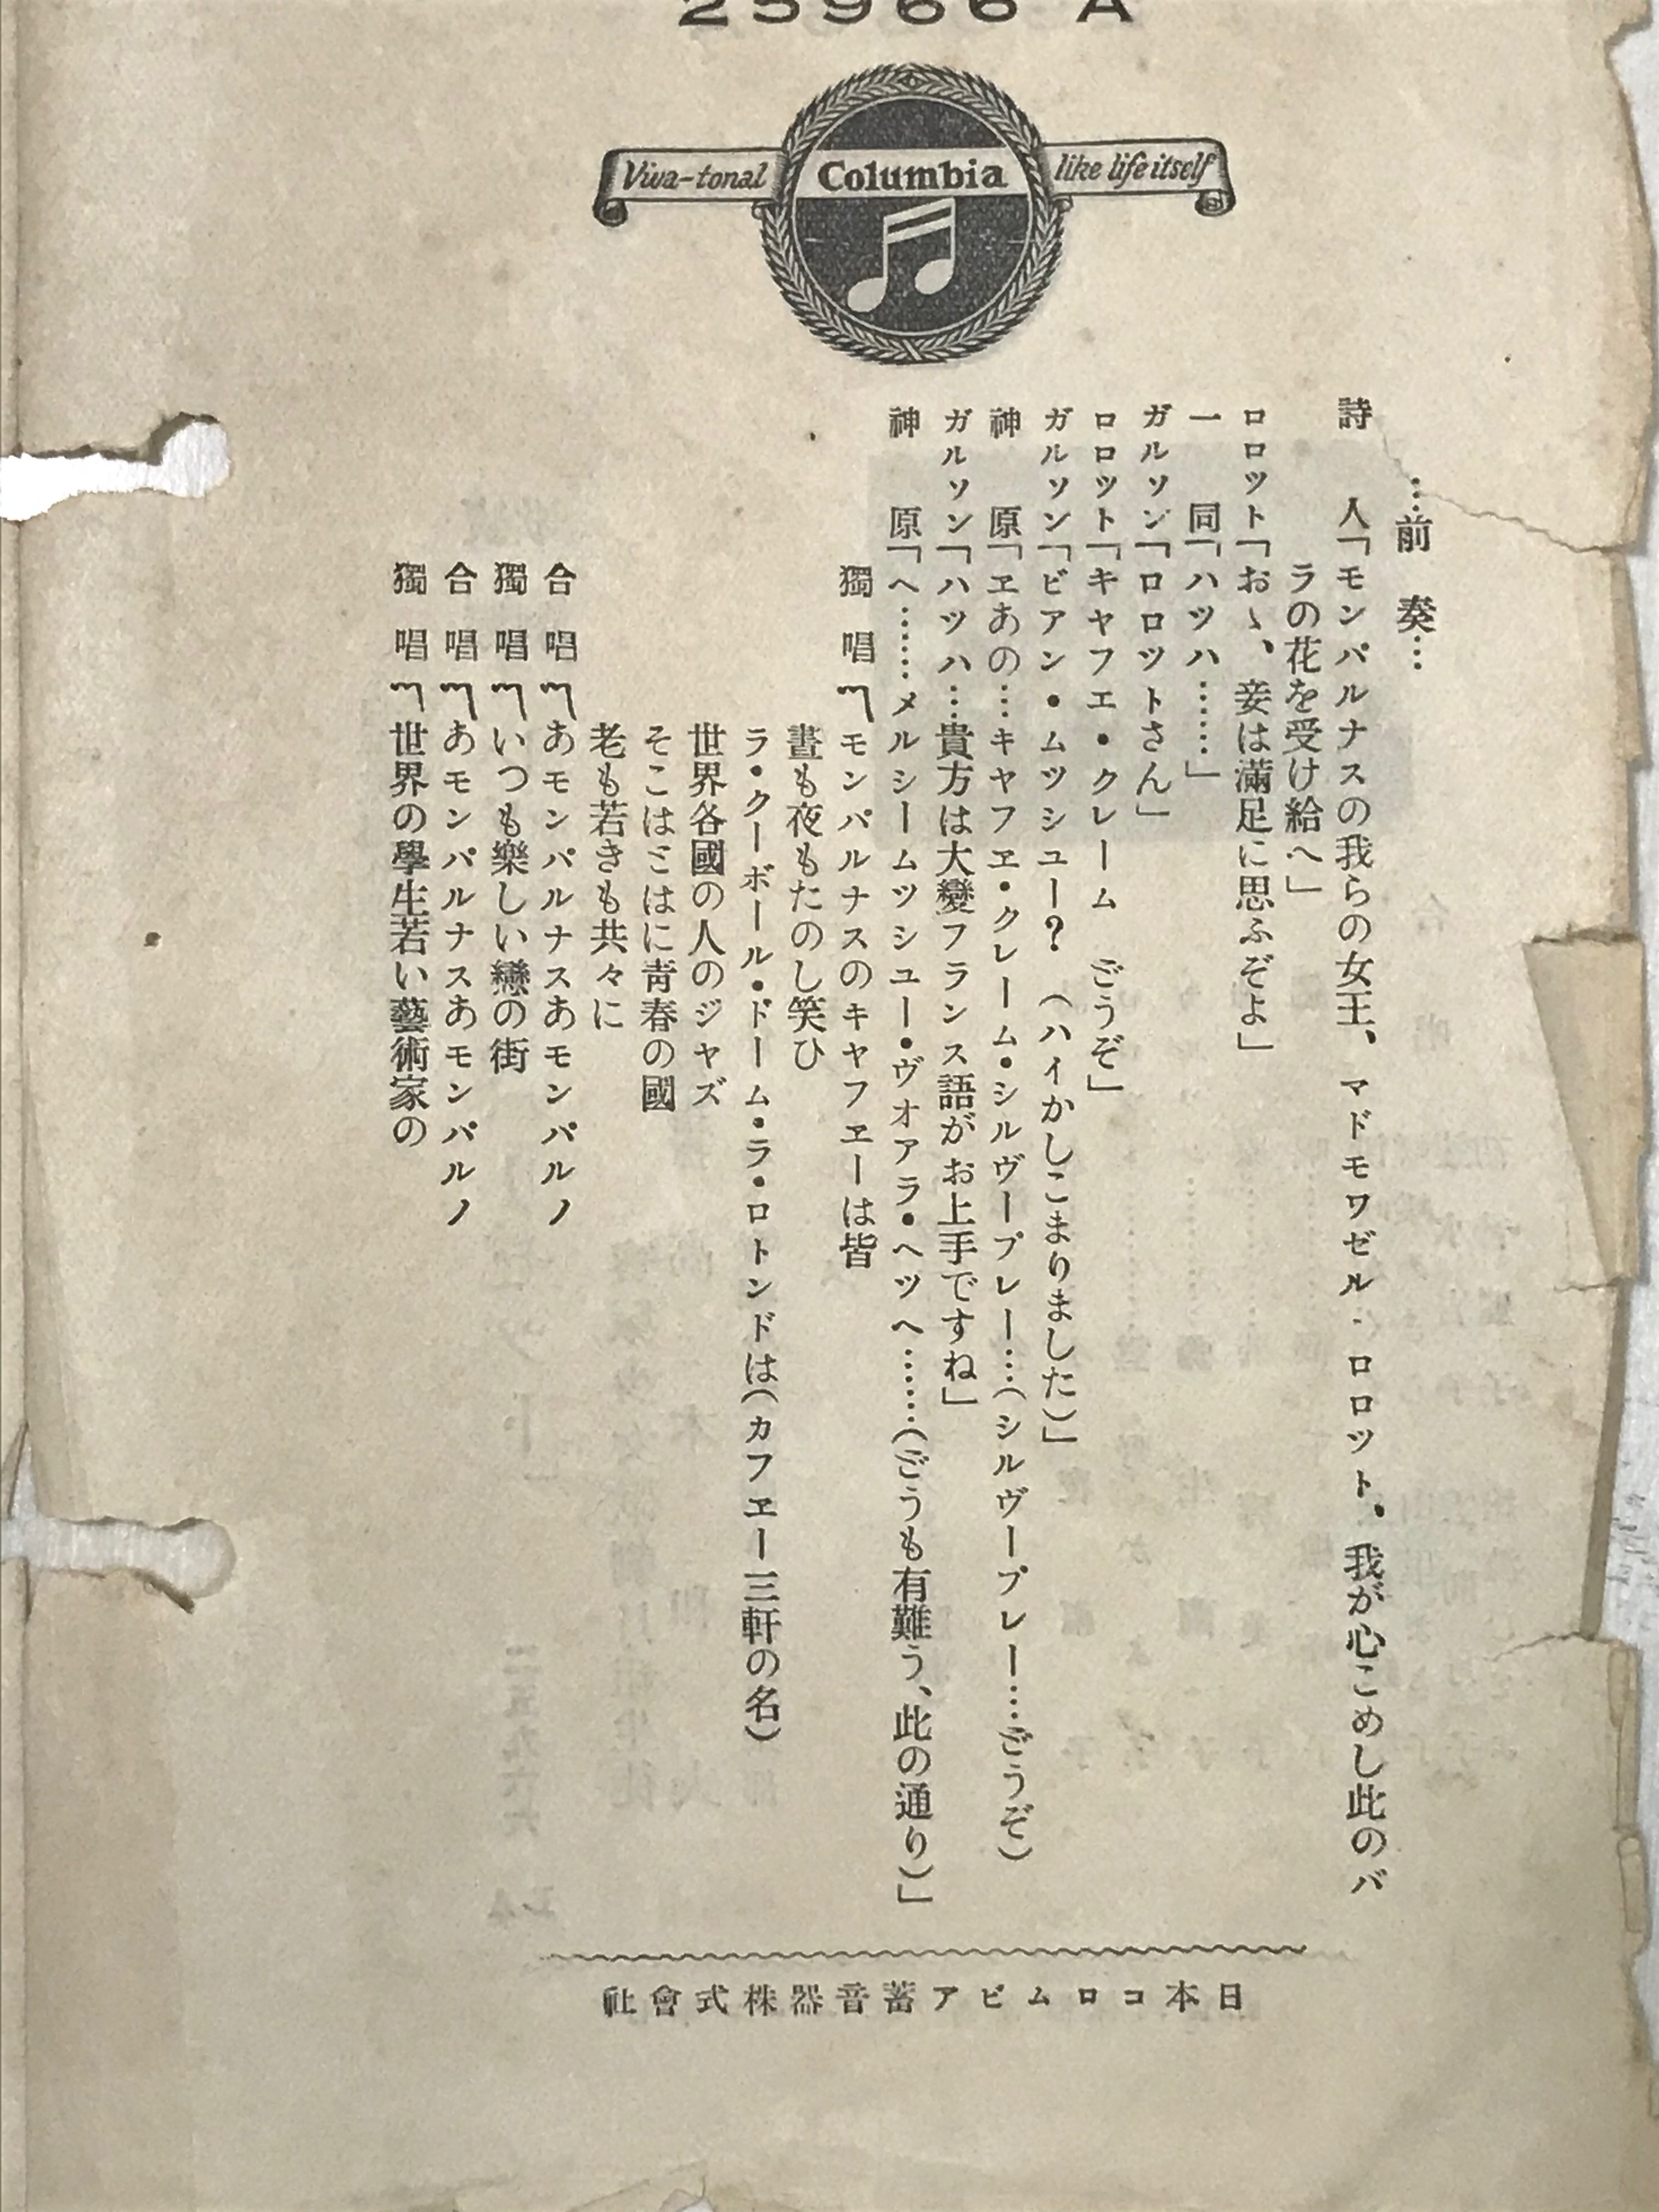 25966 A
Viva-tonal Columbia like life itself
…前奏…
詩人「モンパルナスの我らの女王、マドモワゼル・ロロット、我が心こめし此のバ
ラの花を受け給へ」
ロロット「おゝ、妾は滿足に思ふぞよ」
一同「ハツハ……」
ガルソン「ロロツトさん」
ロロット「キヤフエ・クレーム どうぞ」
ガルソン「ビアン・ムツシユー?（ハイかしこまりました）」
神原「エあの…キヤフヱ・クレーム・シルヴープレー…（シルヴープレー…どうぞ）
ガルソン「ハツハ…貴方は大變フランス語がお上手ですね」
神原「ヘ……メルシームツシユー・ヴオアラ・ヘツヘ……（どうも有難う、此の通り）」
獨唱〽モンパルナスのキヤフヱーは皆
晝も夜もたのし笑ひ
ラ・クーポール・ドーム・ラ・ロトンドは（カフヱー三軒の名）
世界各國の人のジヤズ
そこはとはに靑春の國
老も若きも共々に
合唱〽あモンパルナスあモンパルノ
獨唱〽いつも樂しい戀の街
合唱〽あモンパルナスあモンパルノ
獨唱〽世界の學生若い藝術家の
日本コロムビア蓄音器株式會社